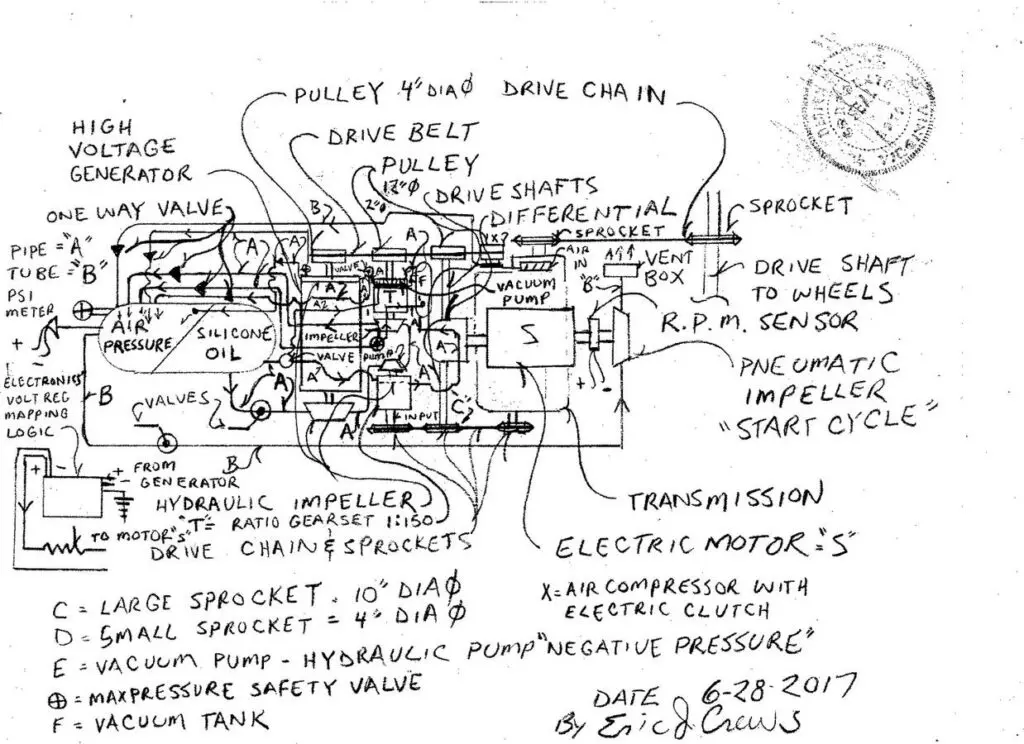 PULLEY 4" DIA Ø DRIVE CHAIN
HIGH
VOLTAGE
GENERATOR
DRIVE BELT
PULLEY
2"Ø
DRIVE SHAFTS
DIFFERENTIAL
SPROCKET
SPROCKET
ONE WAY VALVE
PIPE = "A"
TUBE = "B"
PSI
METER
+
AIR
PRESSURE
SILICONE
OIL
A
A
A
B
VALVE
A2
A2
IMPELLER
VALVE
PUMP
T
F
A
A
A
A
A
X
AIR
IN
VACUUM
PUMP
"B"
VENT
BOX
DRIVE SHAFT
TO WHEELS
R.P.M. SENSOR
S
PNEUMATIC
IMPELLER
"START CYCLE"
ELECTRONICS
VOLT REG
MAPPING
LOGIC
B
VALVES
A
INPUT
C
B
+ -
FROM
GENERATOR
+
-
TO MOTOR "S"
HYDRAULIC IMPELLER
"T" = RATIO GEARSET 1:150
DRIVE CHAIN & SPROCKETS
TRANSMISSION
ELECTRIC MOTOR = "S"
X = AIR COMPRESSOR WITH
ELECTRIC CLUTCH
C = LARGE SPROCKET = 10" DIA Ø
D = SMALL SPROCKET = 4" DIA Ø
E = VACUUM PUMP - HYDRAULIC PUMP "NEGATIVE PRESSURE"
⊕ = MAXPRESSURE SAFETY VALVE
F = VACUUM TANK
DATE 6-28-2017
By Eric J Crews